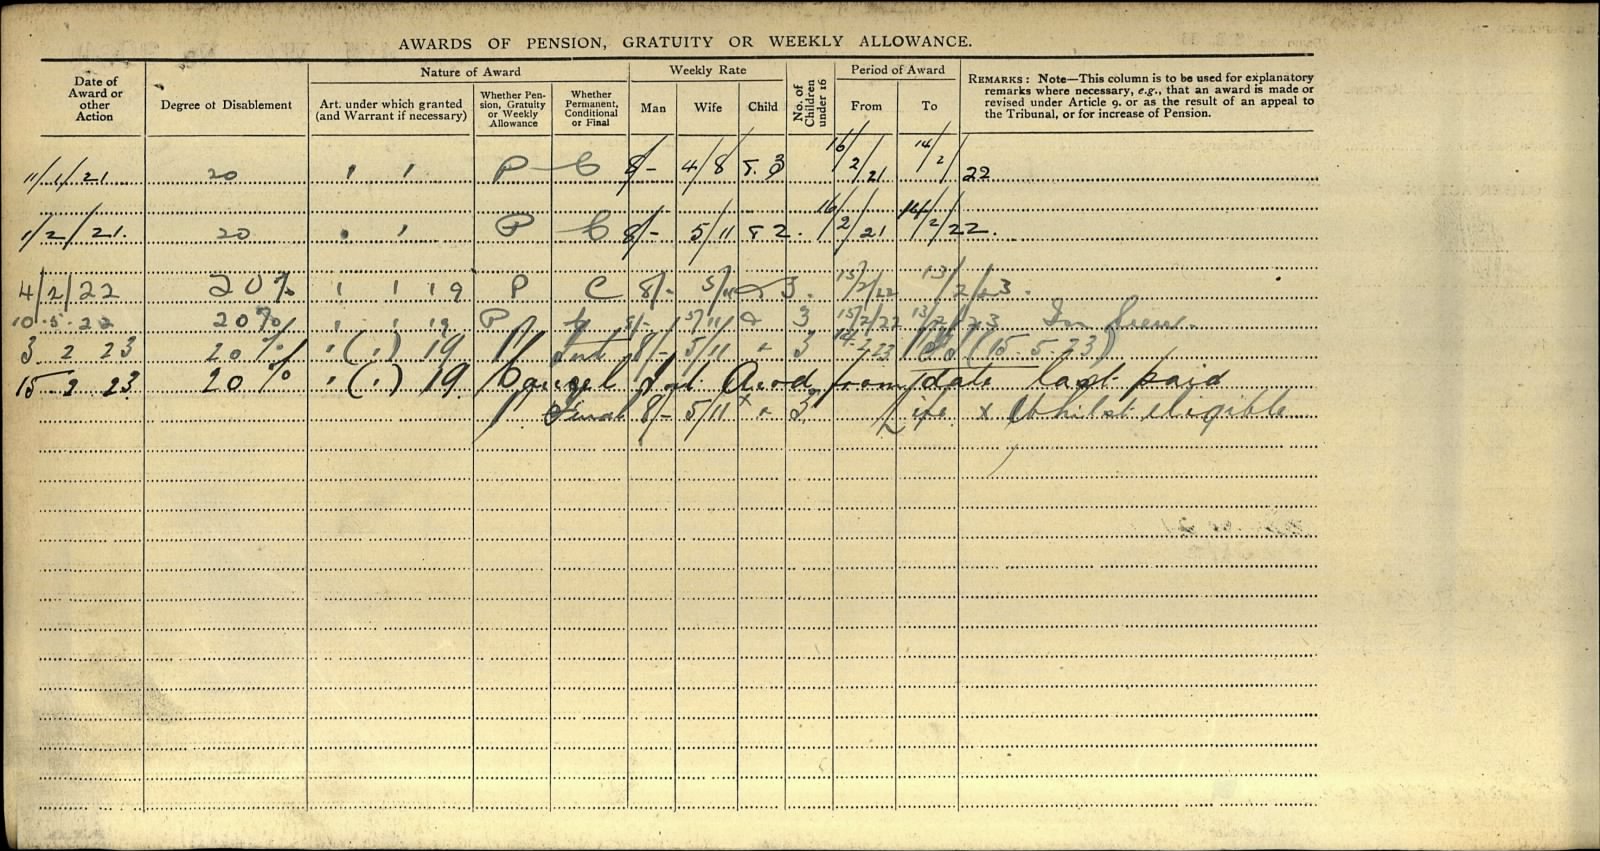 AWARDS OF PENSION, GRATUITY OR WEEKLY ALLOWANCE.
Date of Award or other Action
Degree of Disablement
Nature of Award
Art. under which granted (and Warrant if necessary)
Whether Pension, Gratuity or Weekly Allowance
Whether Permanent, Conditional or Final
Weekly Rate
Man
Wife
Child
No. of Children under 16
Period of Award
From
To
REMARKS: Note—This column is to be used for explanatory
remarks where necessary, e.g., that an award is made or
revised under Article 9, or as the result of an appeal to
the Tribunal, or for increase of Pension.
11/1/21 20 1 1 P C 8/- 4/8 & 3 16/2/21 14/2/22
1/2/21. 20 1 1 P C 8/- 5/11 & 2. 16/2/21 14/2/22.
4/2/22 20% 1 1 19 P C 8/- 5/11 & 3. 15/2/22 13/2/23.
10.5.22 20% 1 1 19 P 8/- 5/11 & 3 15/2/22 13/2/23 In lieu.
3 2 23 20% 1(1) 19 P Int 8/- 5/11 & 3 14.2.23 (15.5.23)
15 2 23 20% 1(1) 19 Cancel Int. Awd from date last paid
P Final 8/- 5/11 x & 3 Life x Whilst eligible